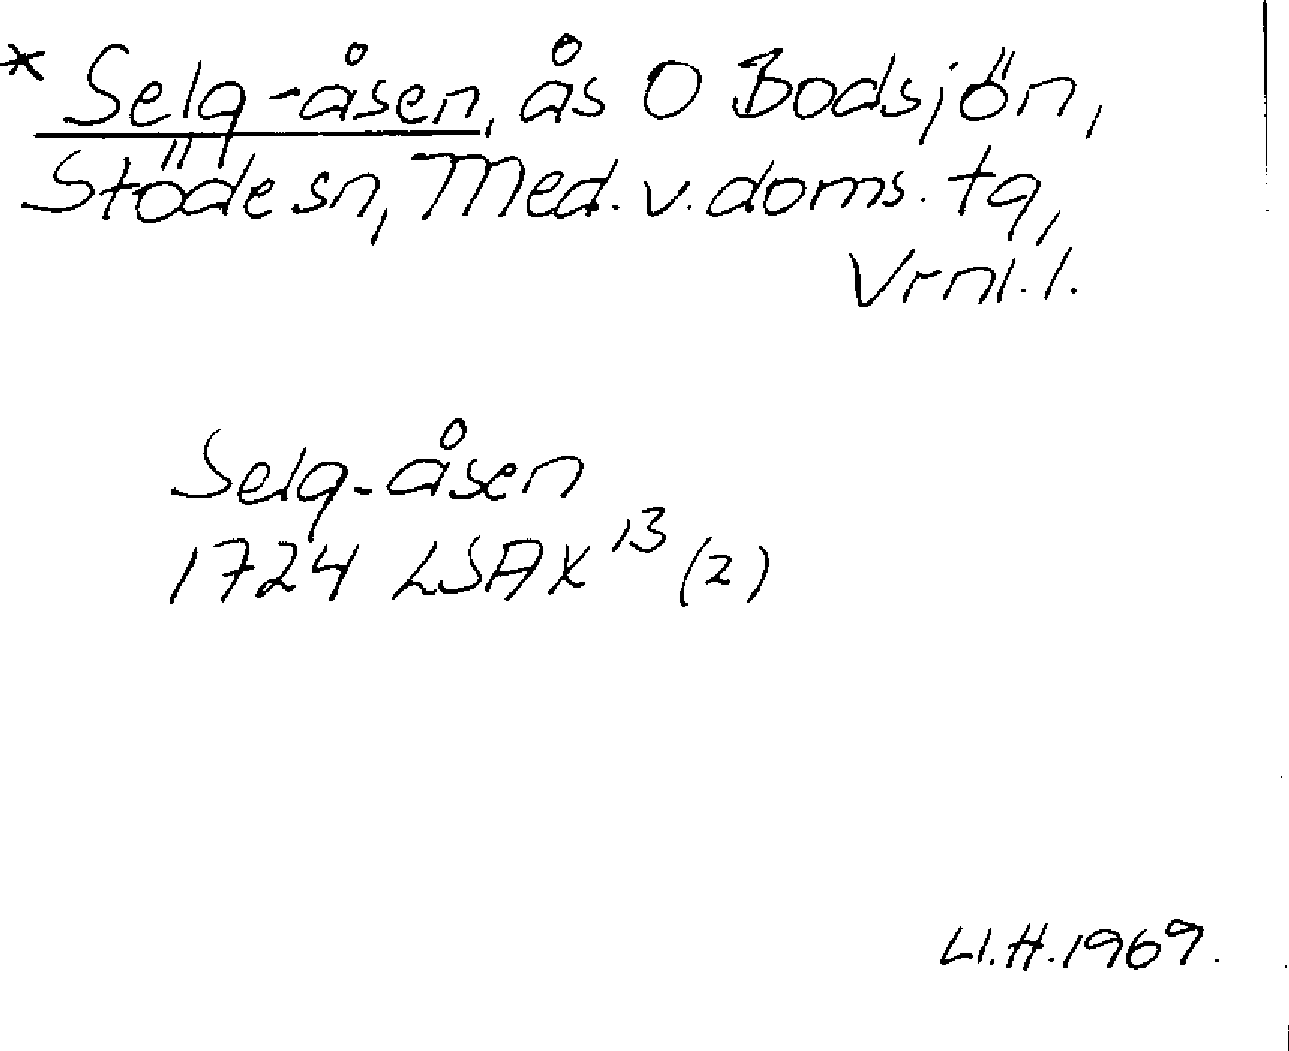 * Selg-åsen, ås O Bodsjön,
Stöde sn, Med. v. doms. tg,
Vrnl. l.
Selg-åsen
1724 LSA X 13 (2)
Ll.H.1969.